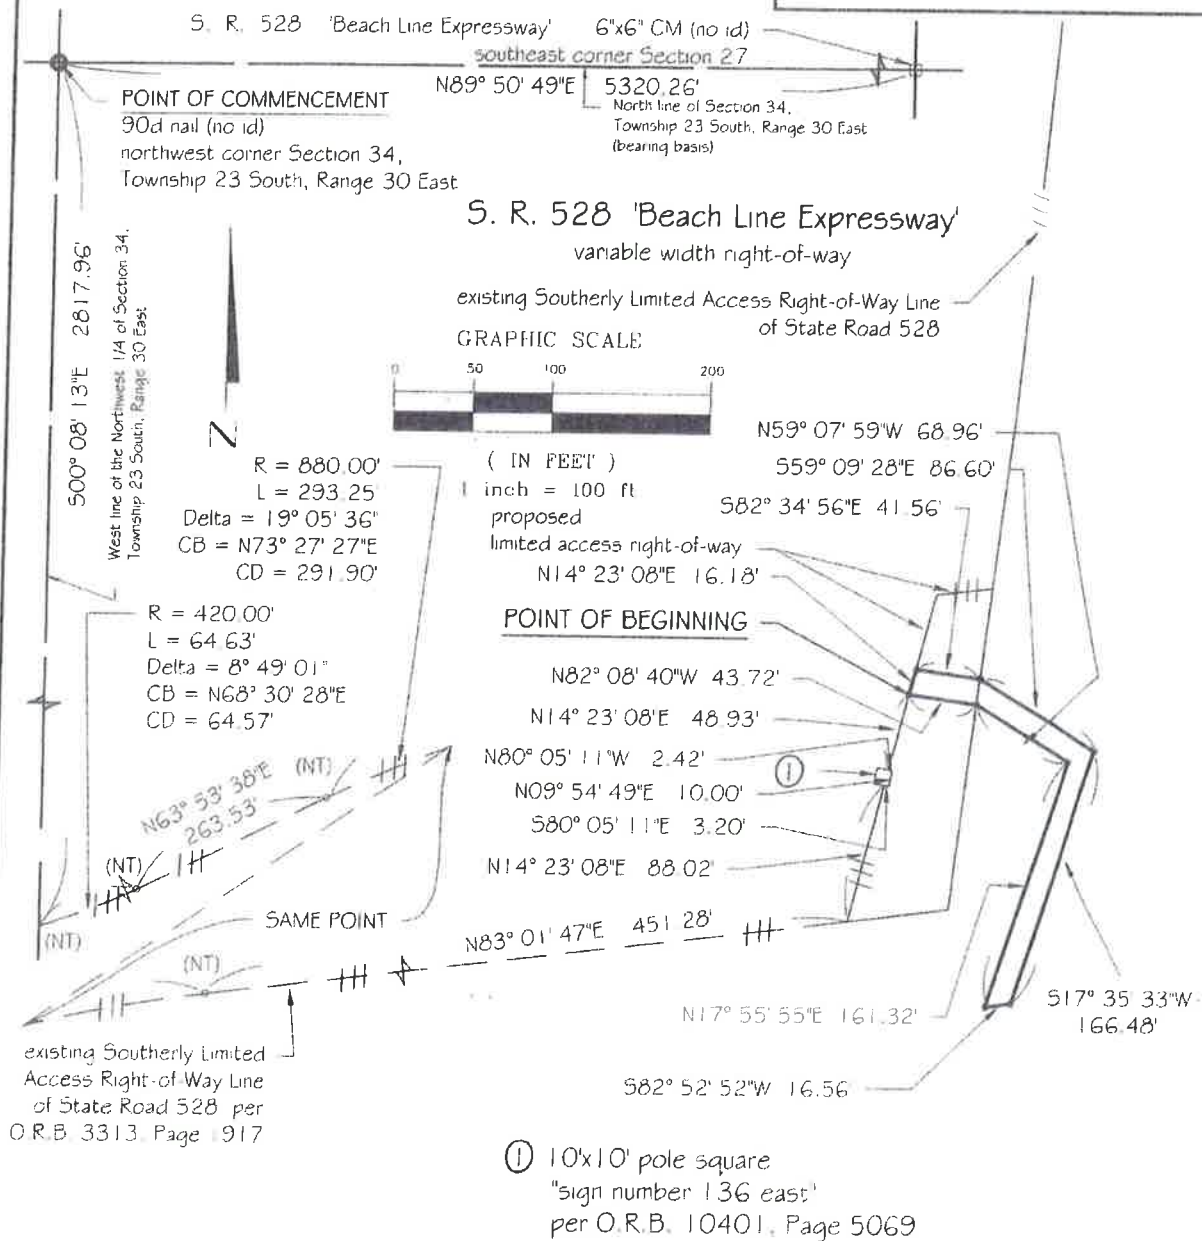 S. R. 528 'Beach Line Expressway' 6"x6" CM (no id)
southeast corner Section 27
N89° 50' 49"E 5320.26'
North line of Section 34,
Township 23 South, Range 30 East
(bearing basis)
POINT OF COMMENCEMENT
90d nail (no id)
northwest corner Section 34,
Township 23 South, Range 30 East
S. R. 528 'Beach Line Expressway'
variable width right-of-way
existing Southerly Limited Access Right-of-Way Line
of State Road 528
S00° 08' 13"E 2817.96'
West line of the Northwest 1/4 of Section 34,
Township 23 South, Range 30 East
GRAPHIC SCALE
0 50 100 200
( IN FEET )
1 inch = 100 ft
N
R = 880.00'
L = 293.25'
Delta = 19° 05' 36"
CB = N73° 27' 27"E
CD = 291.90'
R = 420.00'
L = 64.63'
Delta = 8° 49' 01"
CB = N68° 30' 28"E
CD = 64.57'
N59° 07' 59"W 68.96'
S59° 09' 28"E 86.60'
S82° 34' 56"E 41.56'
proposed
limited access right-of-way
N14° 23' 08"E 16.18'
POINT OF BEGINNING
N82° 08' 40"W 43.72'
N14° 23' 08"E 48.93'
N80° 05' 11"W 2.42'
1
N09° 54' 49"E 10.00'
S80° 05' 11"E 3.20'
N14° 23' 08"E 88.02'
N63° 53' 38"E
263.53'
(NT)
(NT)
(NT)
(NT)
SAME POINT
N83° 01' 47"E 451.28'
N17° 55' 55"E 161.32'
S17° 35' 33"W
166.48'
S82° 52' 52"W 16.56'
existing Southerly Limited
Access Right-of-Way Line
of State Road 528 per
O.R.B. 3313, Page 1917
1 10'x10' pole square
"sign number 136 east"
per O.R.B. 10401, Page 5069